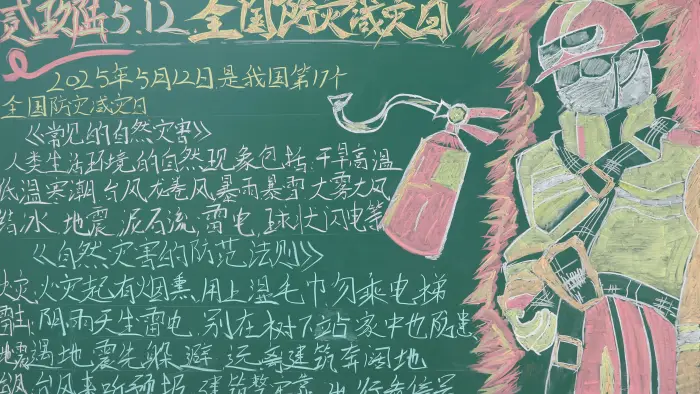 贰零贰伍5.12.全国防灾减灾日
2025年5月12日是我国第17个
全国防灾减灾日
《常见的自然灾害》
人类生活环境的自然现象包括:干旱高温
低温寒潮台风龙卷风暴雨暴雪大雾大风
结冰、地震、泥石流、雷电、球状闪电等
《自然灾害的防范法则》
火灾:火灾起有烟熏用上湿毛巾勿乘电梯
雷击:阴雨天生雷电 别在树下站家中也
地震:遇地震先躲避 远离建筑奔阔地
台风:台风来听预报 建筑